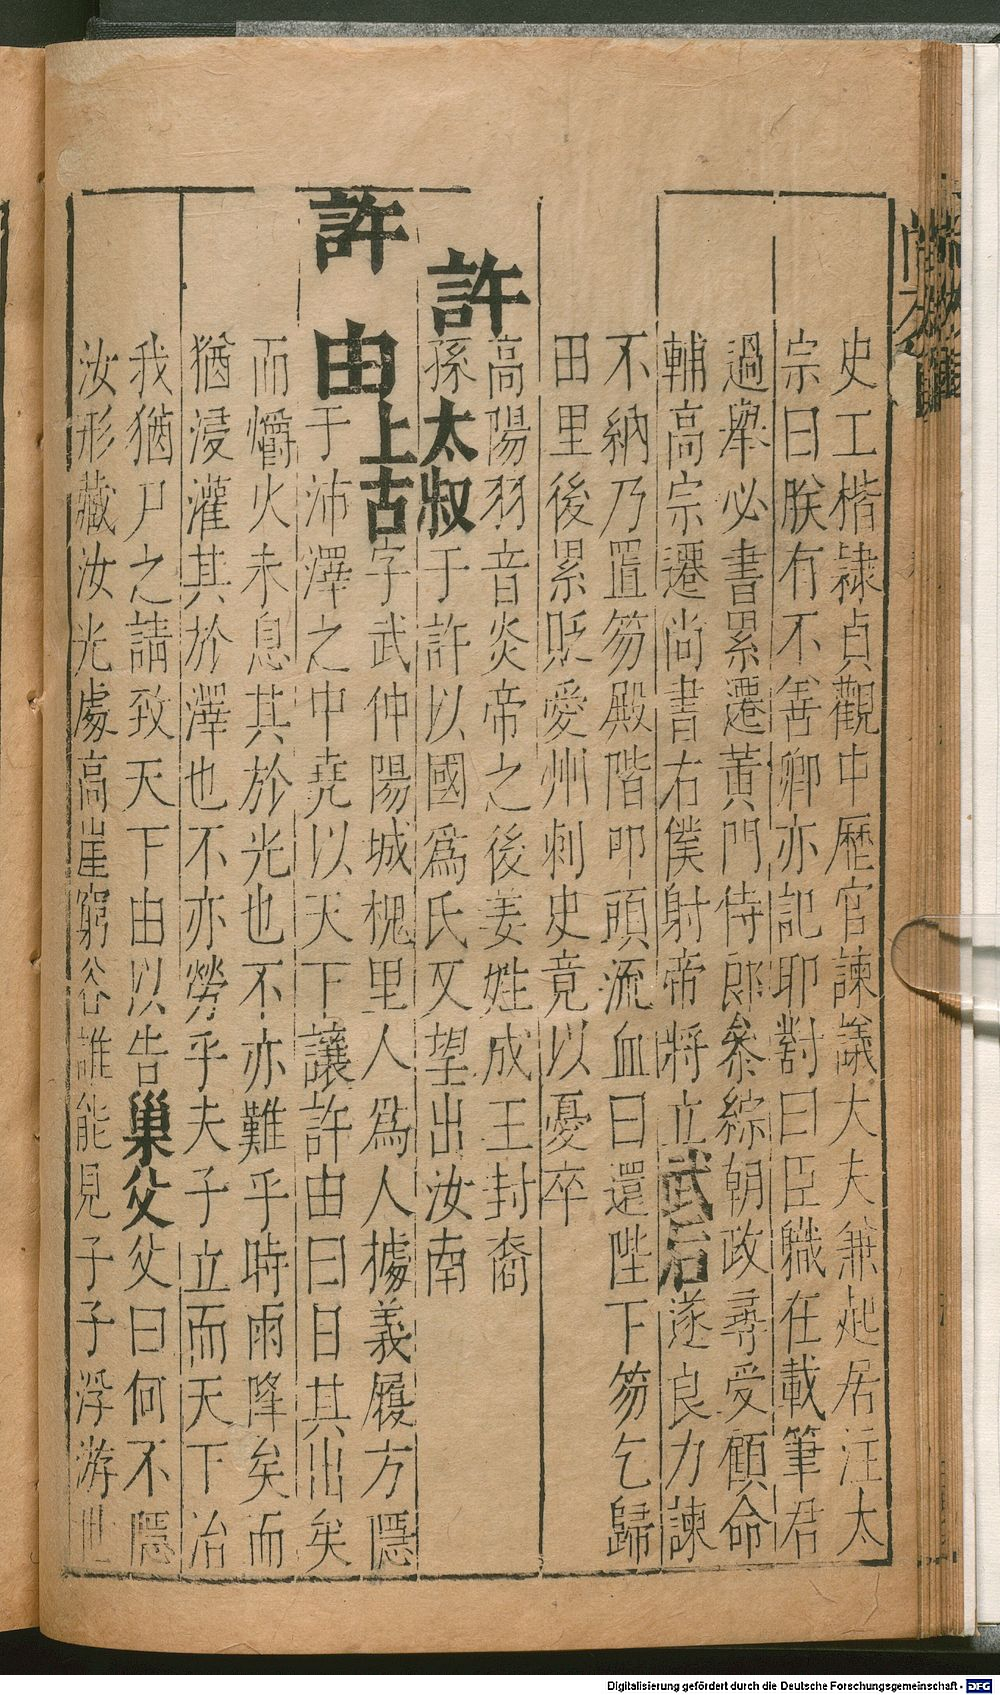 史工楷隷貞觀中歷官諫議大夫兼起居注太
宗曰朕有不善卿亦記耶對曰臣職在載筆君
過舉必書累遷黃門侍郎參綜朝政尋受顧命
輔高宗遷尚書右僕射帝將立武后遂良力諫
不納乃置笏殿階叩頭流血曰還陛下笏乞歸
田里後累貶愛州刺史竟以憂卒
許
高陽羽音炎帝之後姜姓成王封裔
孫太叔于許以國爲氏又望出汝南
許由上古字武仲陽城槐里人爲人據義履方隱
于沛澤之中堯以天下讓許由曰日其出矣
而爝火未息其於光也不亦難乎時雨降矣而
猶浸灌其於澤也不亦勞乎夫子立而天下治
我猶尸之請致天下由以告巢父父曰何不隱
汝形藏汝光處高崖窮谷誰能見子子浮游世
Digitalisierung gefördert durch die Deutsche Forschungsgemeinschaft - DFG